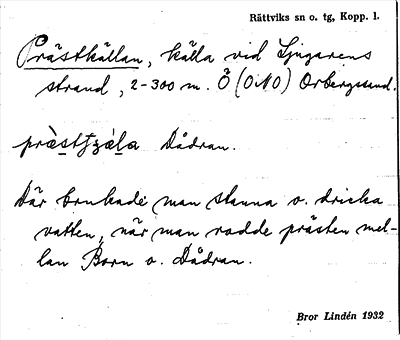 Rättviks sn o. tg, Kopp. l.
Prästkällan, källa vid Ljugarens
strand, 2-300 m. Ö (ONO) Orbergssund.
Dådran.
Där brukade man stanna o. dricka
vatten, när man rodde prästen mel-
lan Born o. Dådran.
Bror Lindén 1932